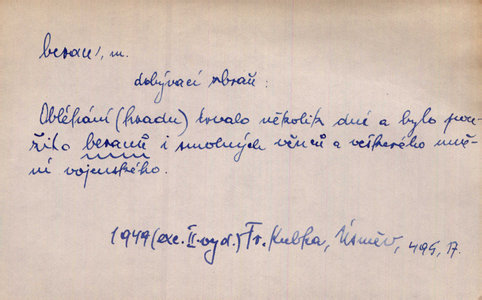 beran, m.
dobývací zbraň:
Obléhání (hradu) trvalo několik dní a bylo pou-
žito beranů i smolných věnců a veškerého umě-
ní vojenského.
1949 (exc. II. vyd.) Fr. Kubka, Úsměv, 495, 17.